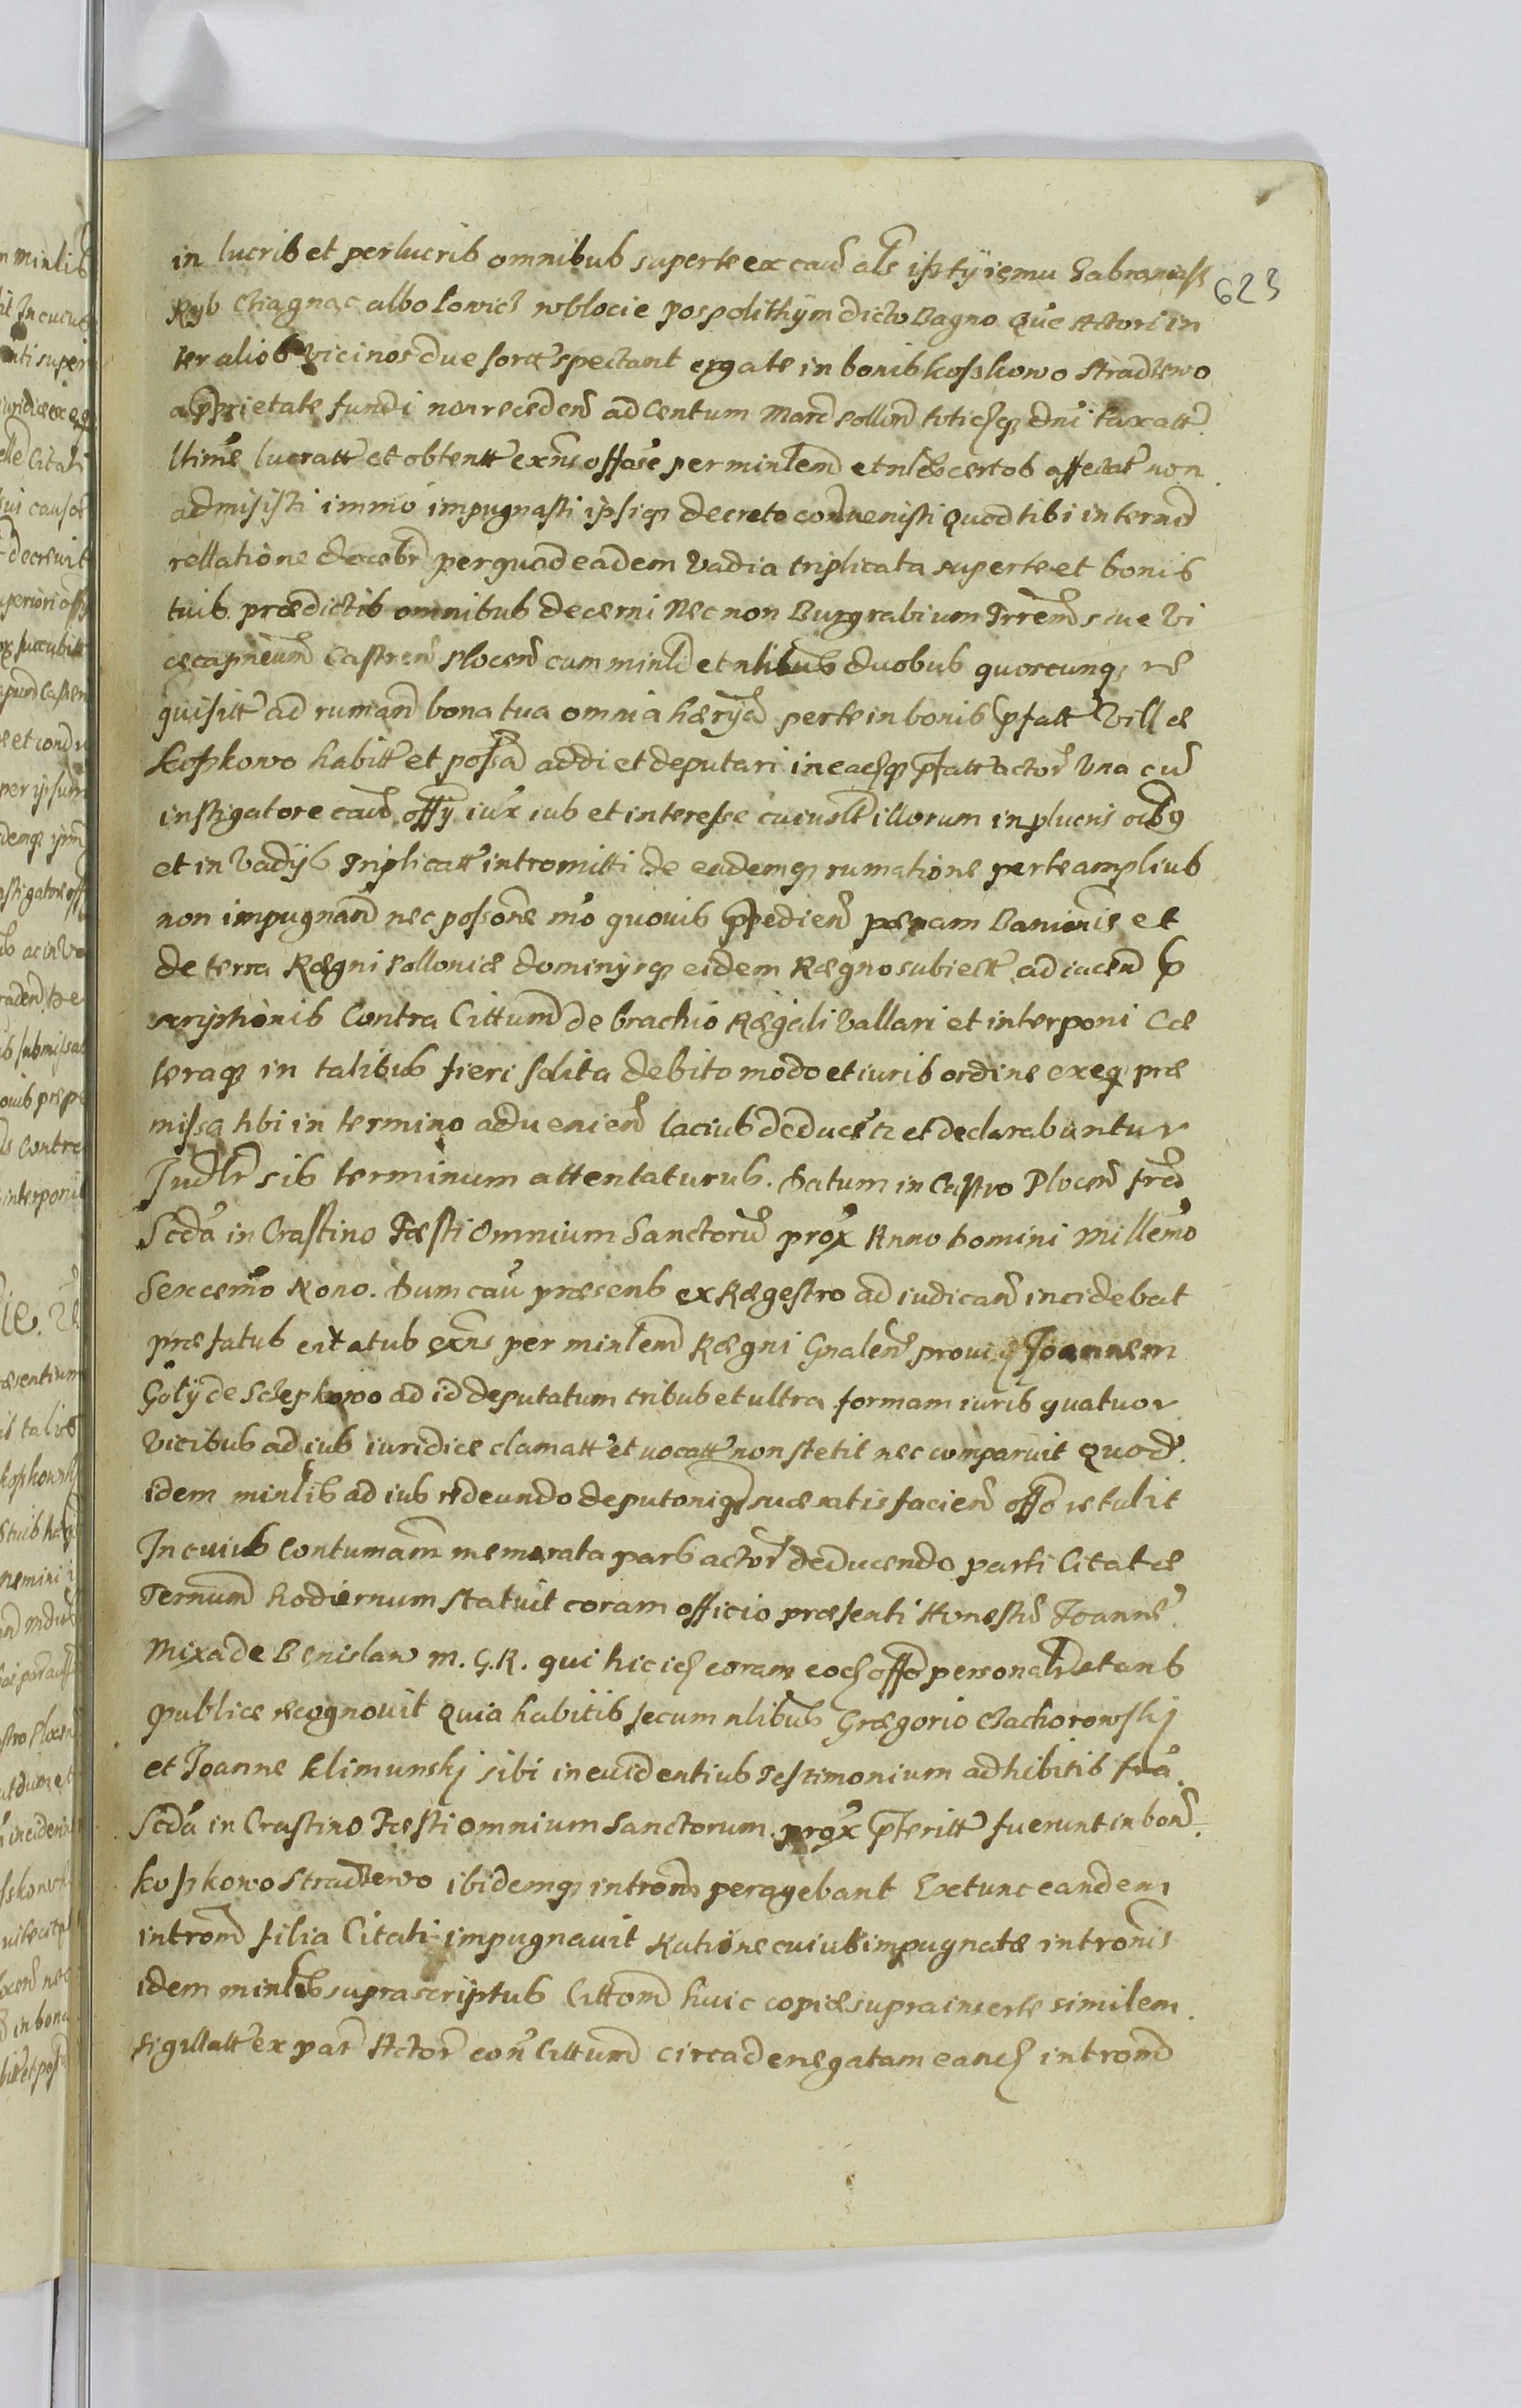 in lucris et perlucris omnibus super te ex cau als isz ty iemu zabraniasz
Ryb Ciiagnac albo Lowicz w blocie pospolithym dicto Bagno Que Actori in
ter alios vicinos due sortt spectant erga te in bonis Koszkowo Stradzewo
a pprietate fundi non recedend ad Centum Marc pollon totiesq dni taxatt
ltime lucratt et obtentt exns offose per minlem et nles certos affectat non
admisisti immo impugnasti ipsiq decreto convenisti Quod tibi in termo
rellatione docebr per quod eadem vadia triplicata super te et bonis
tuis praedictis omnibus decerni Nec non Burgrabium Trrem siue vi
cecapneum Castren Plocen cum minli et nlibus duobus quoscunq re
quisitt ad rumand bona tua omnia haerya per te in bonis pfatt villae
Koszkowo habitt et possa addi et deputari in eaesq pfatt actor vna cu
instigatore cau offy iux ius et interesse cuiuslt illorum in plucris oibg
et in vadys Triplicatt intromitti de eademq rumatione per te amplius
non impugnand nec possone mo quouis ppedien paenam Banionis et
de terra Raegni polloniae dominysq eidem Raegno subiectt adiacen p
scriptionis Contra Cittum de brachio Raegali vallari et interponi Cae
teraq in talibus fieri solita debito modo et iuris ordine exeq prae
missa tibi in termino aduenien lacius deducetr et declarabuntur
Judlr sis terminum attentaturus. Datum in Castro Plocen fra
Scda in Crastino Faesti Omnium Sanctoru prox Anno Domini Millemo
Sexcemo Nono. Dum cau praesens ex Raegestro ad iudicand incidebat
praefatus citatus exns per minlem Raegni Gnalem prouid Joannem
Goly de Sczepkowo ad id deputatum tribus et ultra formam iuris quatuor
vicibus ad ius iuridice clamatt et vocatt non stetit nec comparuit Quod
idem minlis ad ius redeundo deputoniq suae satisfacien offo retulit
In cuius Contumam memorata pars actor deducendo parti Citatae
Ternum hodiernum statuit coram officio praesenti Honestu Joanne
Mixa de Benislaw M. G. R. qui hic ies coram eod offo personalr stans
Publice recognouit Quia habitis secum nlibus Graegorio Ciachorowskj
et Joanne Klimunskj sibi in euidentius Testimonium adhibitis fra
Scda in Crastino Faesti Omnium Sanctorum prox pteritt fuerunt in bon
Koszkowo Stradzewo ibidemq introm peragebant Extunc eandem
introm filia Citati impugnauit Ratione cuius impugnatae intronis
idem minlis suprascriptus Cittom huic copiae supra inserte similem
sigillatt ex par Actor con Cittum circa denegatam eand introm
623